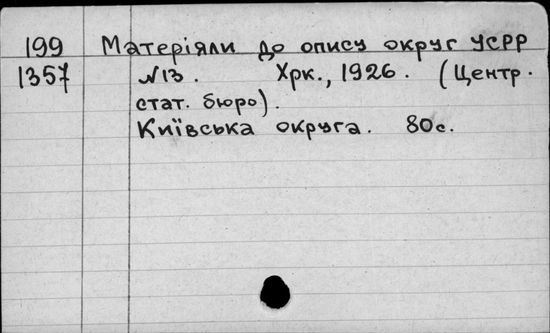 199 Матеріяли до опису округ УСРР
1357 №13. Хрк., 1926. (Центр.
стат. бюро).
Київська округа. 80с.